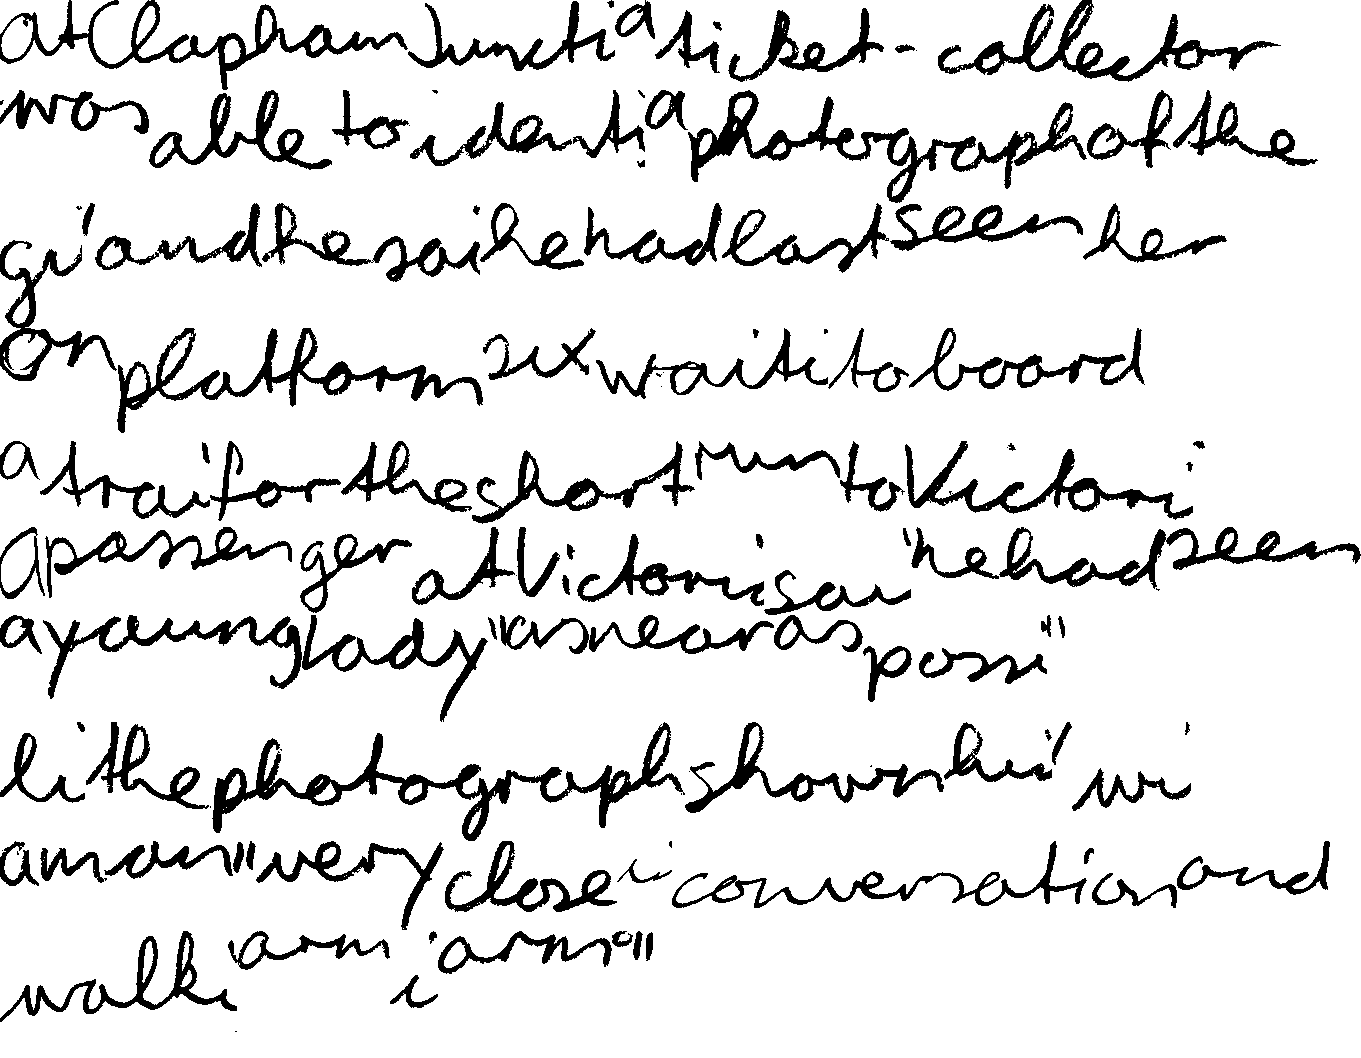 at Clapham Juncti a ticket-collector
was able to identi a photograph of the
gi' and he sai he had last seen her
on platform six waiti to board
a trai for the short run to Victori
A passenger at Victori sai "he had seen
a young lady "as near as possi"
li the photograph shown hi' wi
a man "very close i conversation and
walki arm i arm."